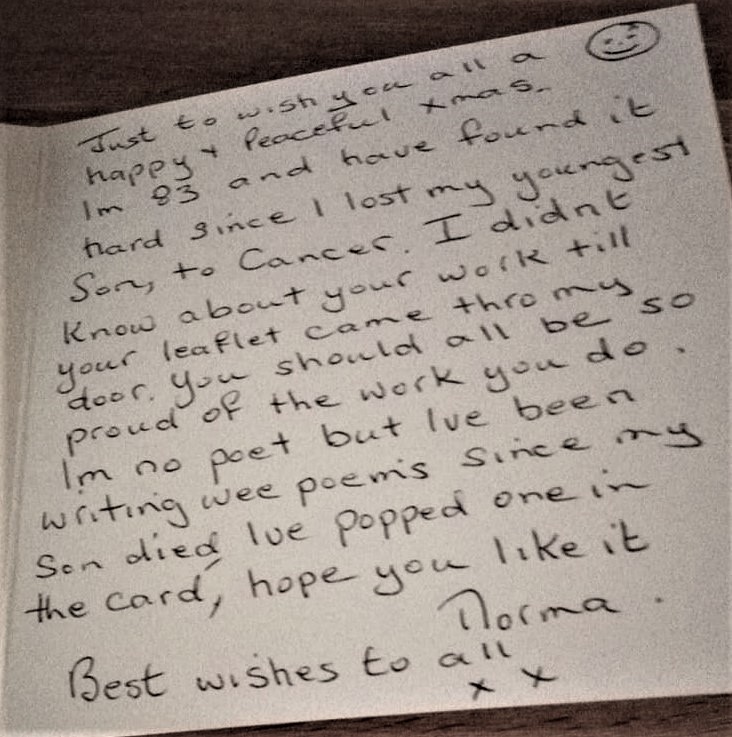 Just to wish you all a
happy + Peaceful xmas.
Im 83 and have found it
hard since I lost my youngest
Son, to Cancer. I didnt
Know about your work till
your leaflet came thro my
door. You should all be so
proud of the work you do.
Im no poet but Ive been
writing wee poems since my
Son died, Ive popped one in
the card, hope you like it
Norma.
Best wishes to all
x x